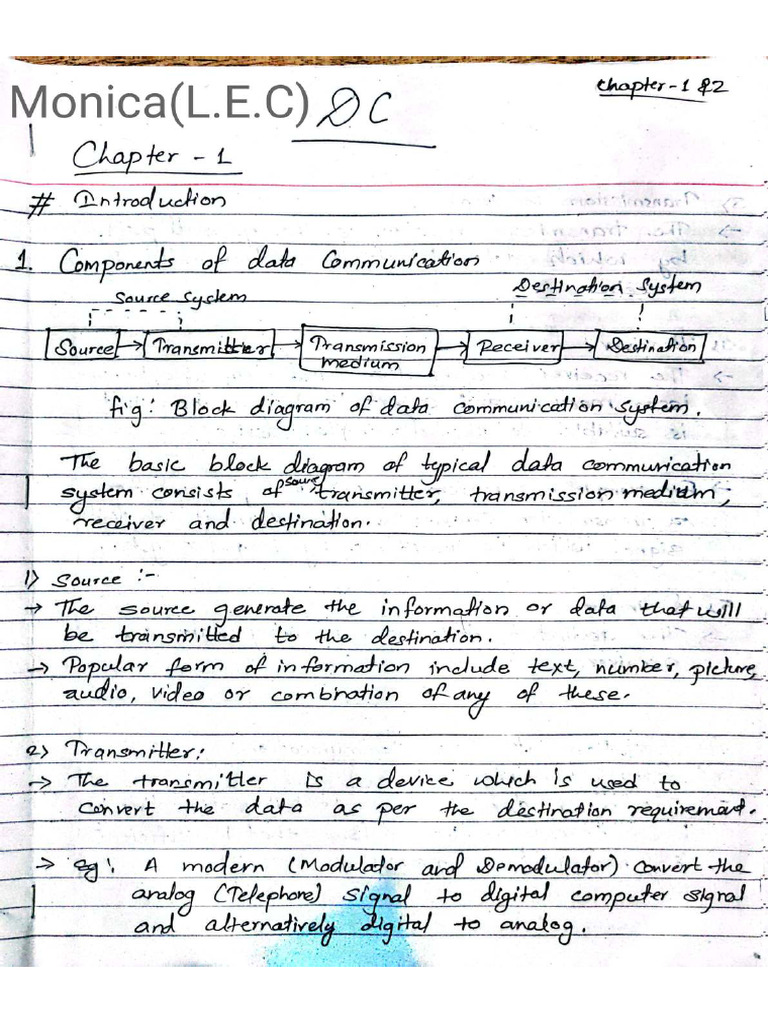 Chapter-1 &2
Monica(L.E.C) DC
Chapter - 1
# Introduction
1. Components of data Communication
Source System
Destination System
Source
Transmitter
Transmission medium
Receiver
Destination
fig: Block diagram of data communication system.
The basic block diagram of typical data communication
system consists of source transmitter, transmission medium,
receiver and destination.
1) Source :-
→ The source generate the information or data that will
be transmitted to the destination.
→ Popular form of information include text, number, picture,
audio, video or combination of any of these.
2) Transmitter:
→ The transmitter is a device which is used to
convert the data as per the destination requirement.
→ eg: A modern (Modulator and Demodulator) convert the
analog (Telephone) signal to digital computer signal
and alternatively digital to analog.